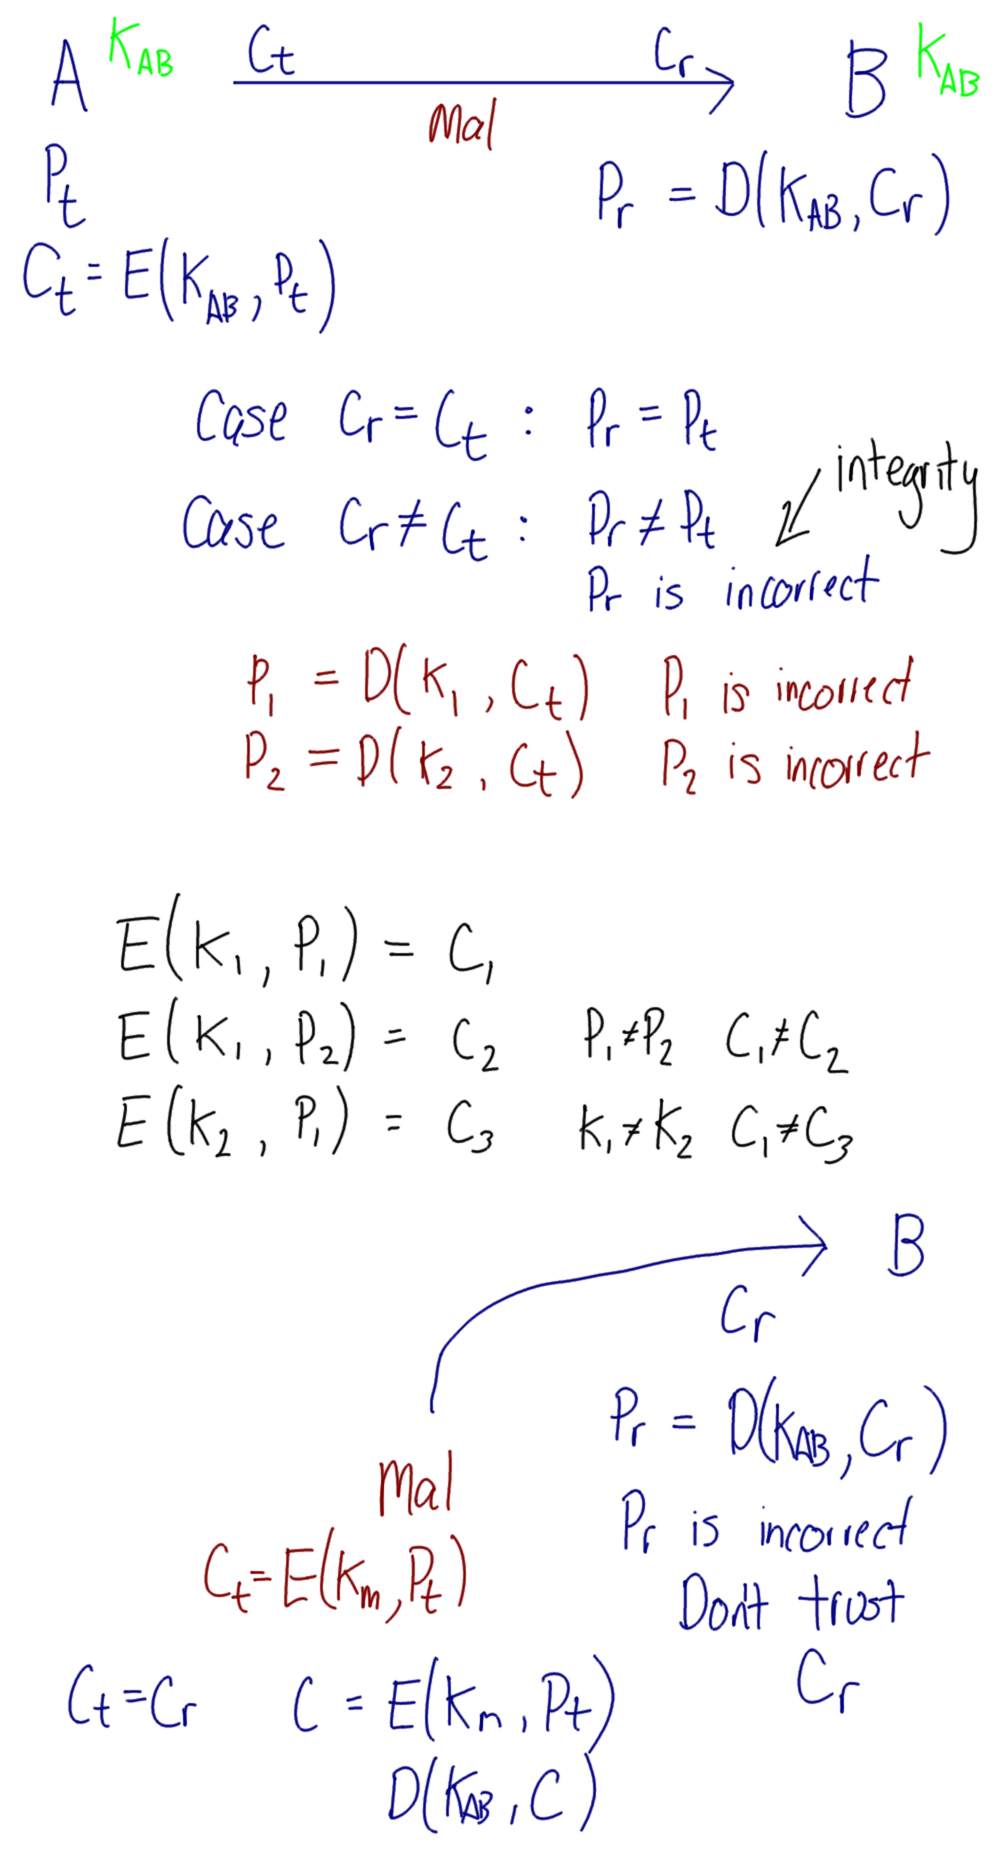 A K_AB C_t C_r B K_AB
Mal
P_t P_r = D(K_AB, C_r)
C_t = E(K_AB, P_t)
Case C_r = C_t : P_r = P_t
integrity
Case C_r ≠ C_t : P_r ≠ P_t
P_r is incorrect
P_1 = D(K_1, C_t) P_1 is incorrect
P_2 = D(K_2, C_t) P_2 is incorrect
E(K_1, P_1) = C_1
E(K_1, P_2) = C_2 P_1≠P_2 C_1≠C_2
E(K_2, P_1) = C_3 K_1≠K_2 C_1≠C_3
B
C_r
P_r = D(K_AB, C_r)
Mal
P_r is incorrect
C_t=E(K_m, P_t)
Don't trust
C_r
C_t=C_r C = E(K_m, P_t)
D(K_AB, C)